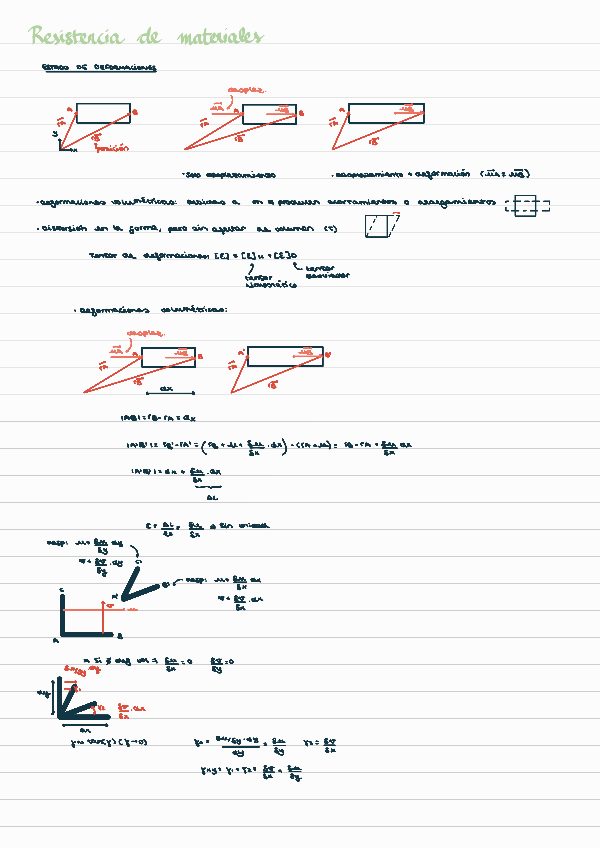 Resistencia de materiales
ESTADO DE DEFORMACIONES
desplaz.
A B A B
y x posición
· Solo desplazamiento · desplazamiento + deformación
· deformaciones volumétricas: debidas a σm → producen acortamientos o alargamientos
· distorsión en la forma, pero sin ajustar de volumen (τ)
tensor de deformaciones: [E] = [E]v + [E]D
tensor volumétrico
tensor desviador
· deformaciones volumétricas:
desplaz.
dx
|AB| = rB - rA = dx
|A'B'| = rB' - rA' = (rB + u + δu/δx · dx) - (rA + u) = rB - rA + δu/δx dx
|A'B'| = dx + δu/δx · dx
ΔL
ε = ΔL/dx = δu/δx → sin unidad
despl: u = δu/δy dy
v = δv/δy · dy
despl: u = δu/δx dx
v = δv/δx · dx
C
A B
δu/δy dy
dy
γ1
γ2 δv/δx · dx
dx
γ ≈ tan(γ) (γ→0) γ1 = δu/δy · dy / dy = δu/δy γ2 = δv/δx
γxy = γ1 + γ2 = δv/δx + δu/δy